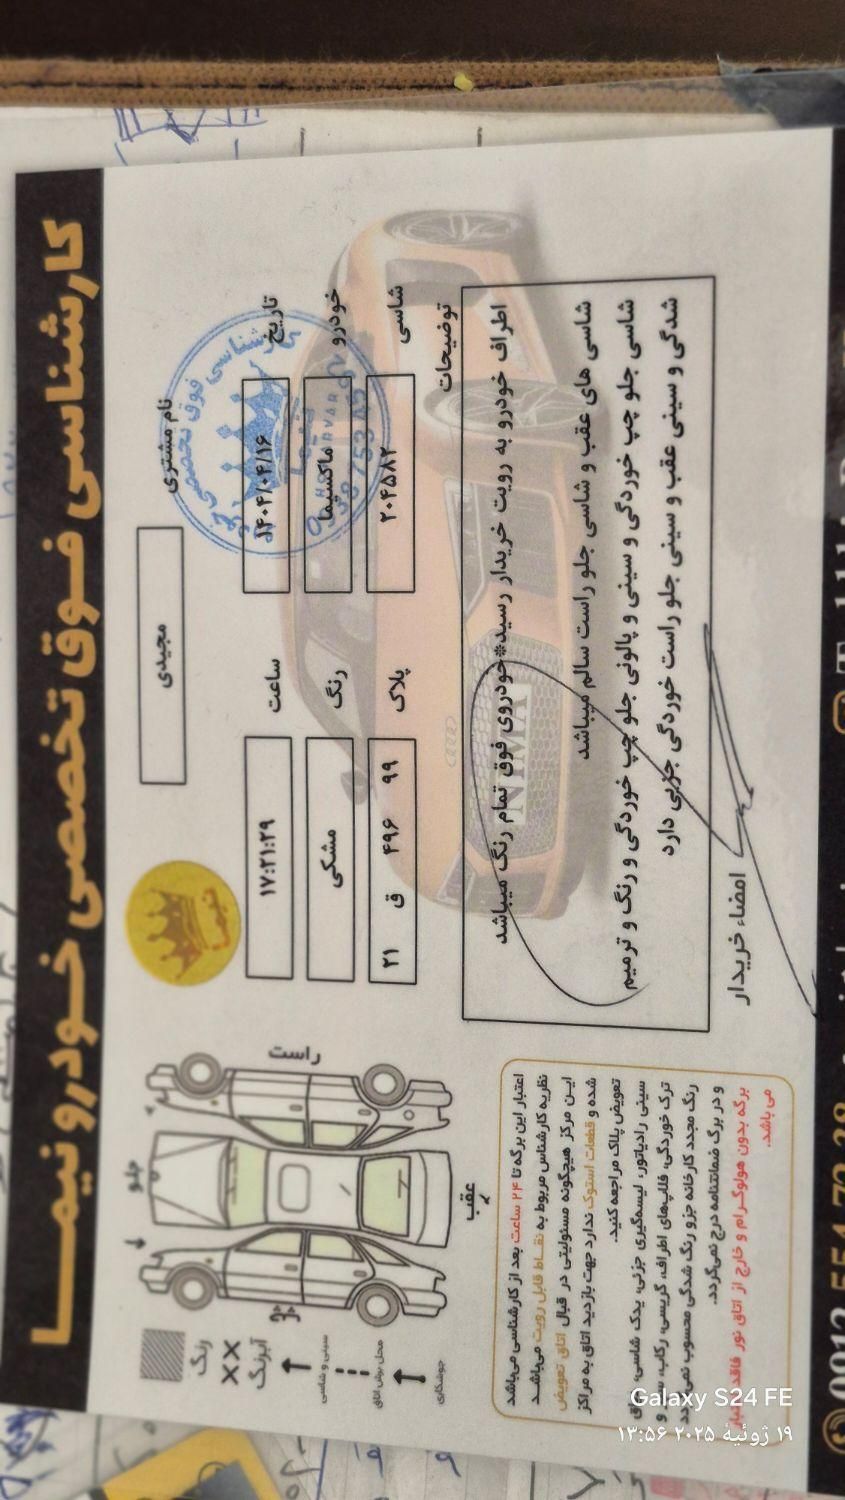 کارشناسی فوق تخصصی خودرو نیما
نام مشتری
مجیدی
تاریخ
۱۴۰۴/۰۴/۱۶
ساعت
۱۷:۲۱:۲۹
خودرو
ماکسیما
رنگ
مشکی
شاسی
۲۰۴۵۸۲
پلاک
۹۹ ۴۹۶ ق ۲۱
توضیحات
اطراف خودرو به رویت خریدار رسید*خودروی فوق تمام رنگ میباشد
شاسی های عقب و شاسی جلو راست سالم میباشد
شاسی جلو چپ خوردگی و سینی و پالونی جلو چپ خوردگی و رنگ و ترمیم
شدگی و سینی عقب و سینی جلو راست خوردگی جزیی دارد
امضاء خریدار
NIMA
نیما
راست
جلو
عقب
چپ
رنگ
XX
آبرنگ
سینی و شاسی
محل برش اتاق
جوشکاری
اعتبار این برگه تا ۲۴ ساعت بعد از کارشناسی می‌باشد
نظریه کارشناس مربوط به نقاط قابل رویت می‌باشد
این مرکز هیچگونه مسئولیتی در قبال اتاق تعویض
شده و قطعات استوک ندارد جهت بازدید اتاق به مراکز
تعویض پلاک مراجعه کنید.
سینی رادیاتور، لیسه‌گیری جزئی، یدک شاسی،
ترک خوردگی، قلاپ‌های اطراف، گریسی، رکاب، و
رنگ مجدد کارخانه جزو رنگ شدگی محسوب نمی
و در برگ ضمانتنامه درج نمی‌گردد.
برگه بدون هولوگرام و خارج از اتاق نور فاقد
می باشد.
کارشناسی فوق تخصصی
0912 554 72 38
Galaxy S24 FE
۱۹ ژوئیهٔ ۲۰۲۵ ۱۳:۵۶